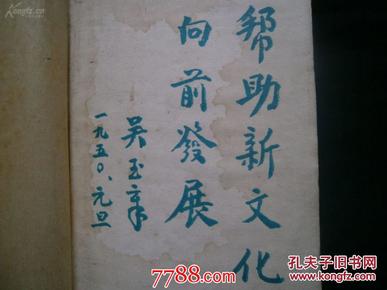 帮助新文化
向前發展
吴玉章
一九五〇、元旦
7788.com
孔夫子旧书网